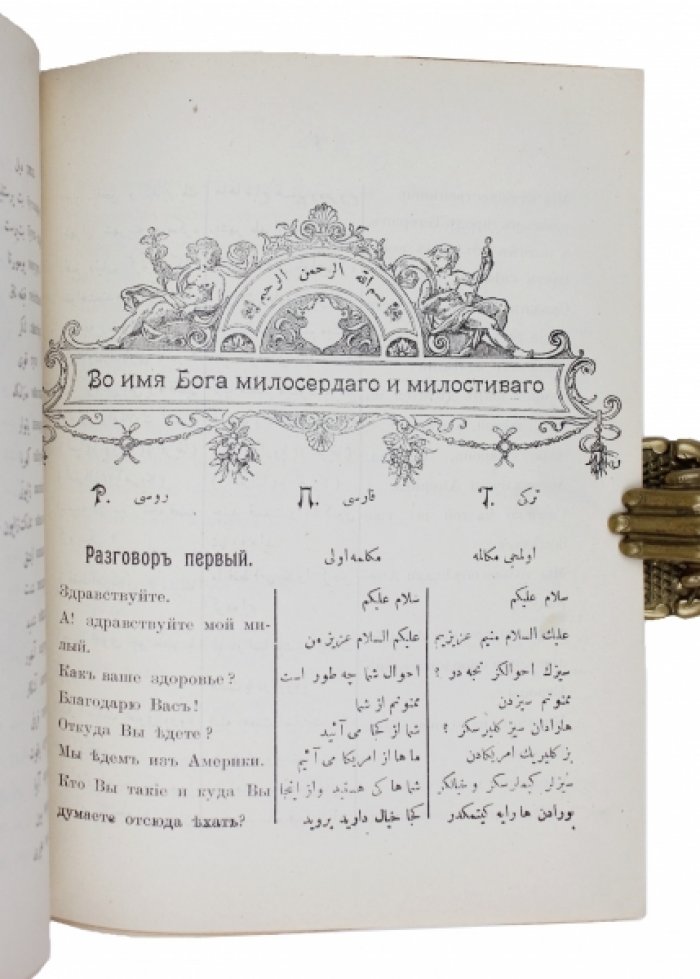 بسم الله الرحمن الرحيم
Во имя Бога милосердаго и милостиваго
Р. روسی П. فارسی Т. ترکی
Разговоръ первый. مکالمه اولی اولمجی مکالمه
Здравствуйте. سلام علیکم سلام علیکم
А! здравствуйте мой ми-
лый. علیکم السلام عزیز من علیك السلام منیم عزیزیم
Какъ ваше здоровье? احوال شما چه طور است سیزك احوالکز نجه دو ؟
Благодарю Васъ! ممنونم از شما ممنونم سیزدن
Откуда Вы ѣдете? شما از کجا می آئید هارادان سیز کلیرسکز ؟
Мы ѣдемъ изъ Америки. ما ها از امریکا می آئیم بز کلیریك امریکادن
Кто Вы такіе и куда Вы شما ها کی هستید و از اینجا سیزلر کیملرسکز و خیالکز
думаете отсюда ѣхать? کجا خیال دارید بروید بورادن هارایه کیتمکدر